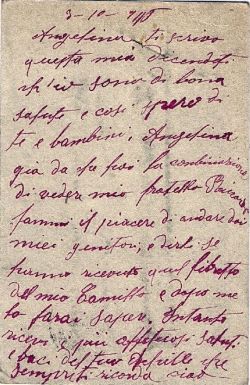 3-10-915
Angelina ti scrivo
questa mia dicendoti
ch'io sono di bona
salute e cosi spero di
te e bambini, Angelina
gia da che hai la combinazione
di vedere mio fratello
fammi il piacere di andare dai
miei genitori, e dirli se
hanno ricevuto quel libretto
del mio Camillo e dopo me
lo farai sapere Intanto
ricevi i più affettuosi saluti
e baci del tuo Achille che
sempre ti ricorda ciao